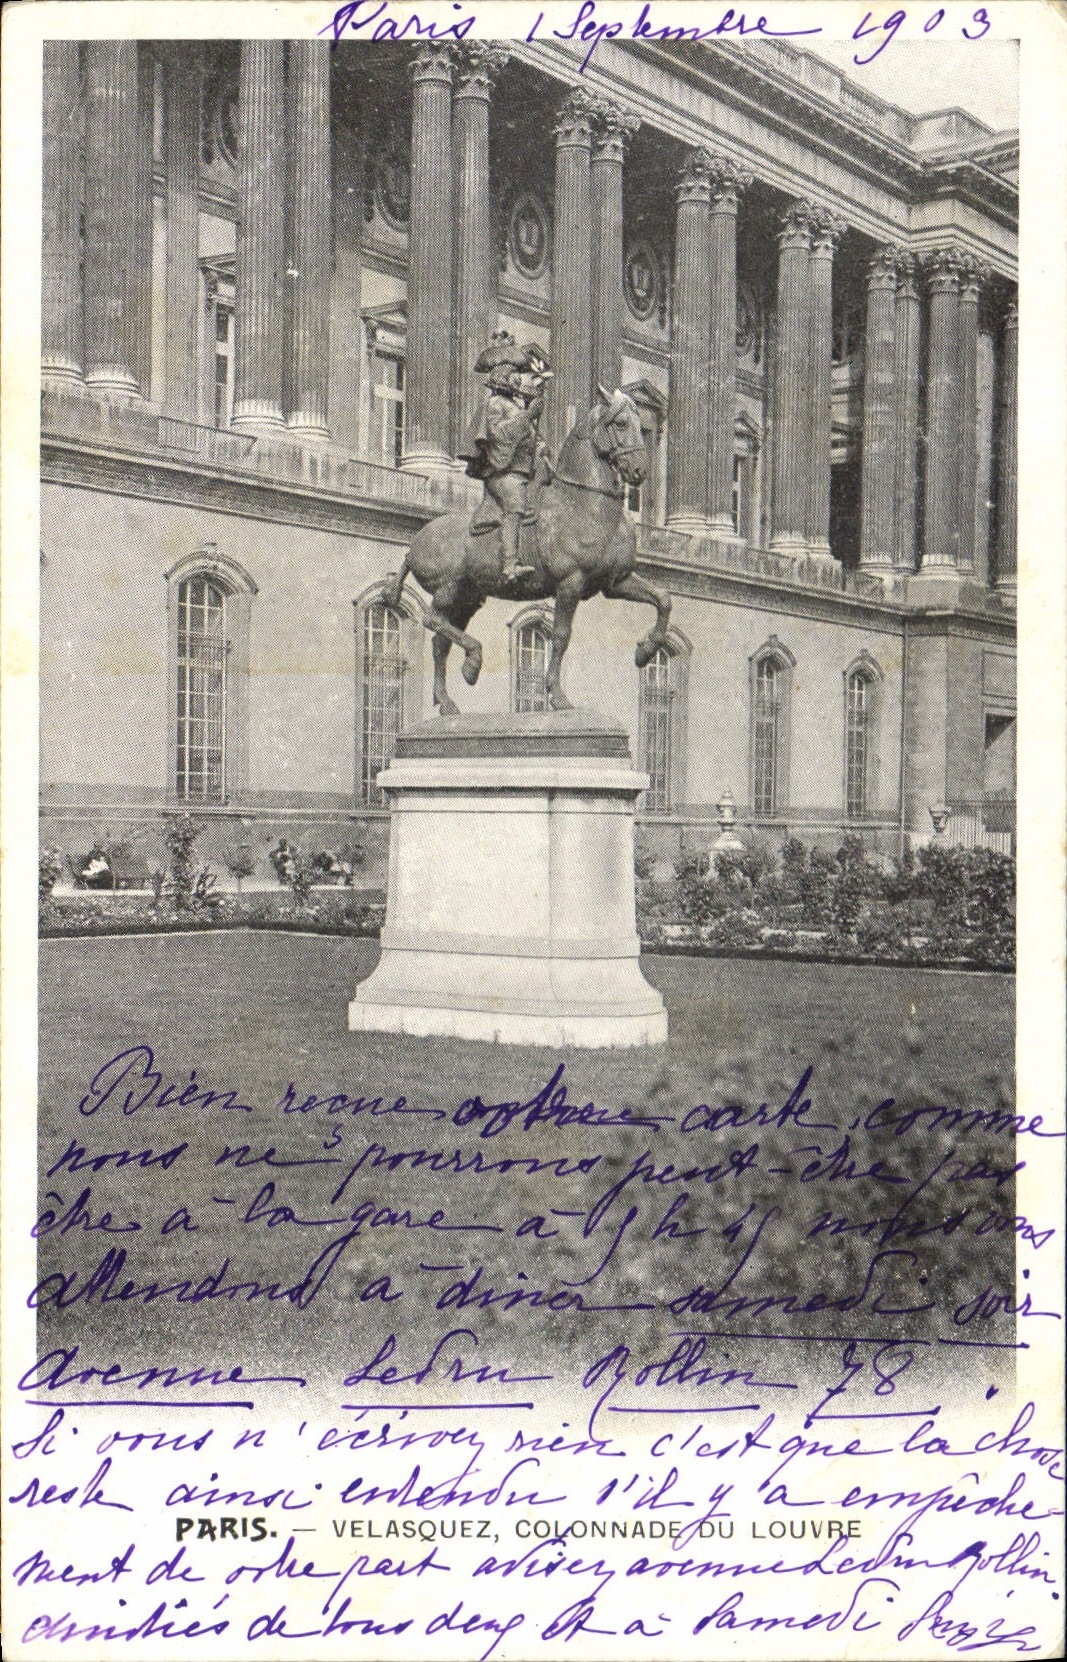 Paris 1 Septembre 1903
Bien reçue votre carte, comme
nous ne pourrons peut-être pas
être à la gare à 5 h 45 nous vous
attendons à dîner samedi soir
Avenue Ledru Rollin 78.
Si vous n'écrivez rien c'est que la chose
reste ainsi entendu s'il y a empêche-
PARIS. — VELASQUEZ, COLONNADE DU LOUVRE
ment de votre part avisez avenue Ledru Rollin.
Amitiés de tous deux et à Samedi